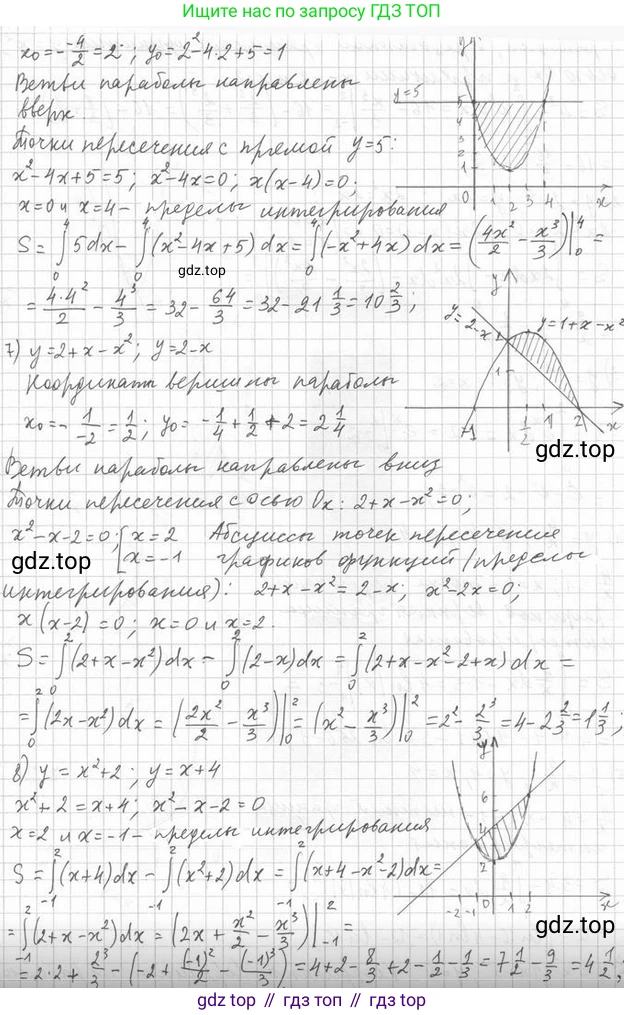 Ищите нас по запросу ГДЗ ТОП
x₀ = -\frac{-4}{2} = 2; y₀ = 2² - 4·2 + 5 = 1
Ветви параболы направлены
вверх.
Точки пересечения с прямой y=5:
x² - 4x + 5 = 5; x² - 4x = 0; x(x-4) = 0;
x = 0 и x = 4 - пределы интегрирования
S = ∫₀⁴ 5dx - ∫₀⁴ (x² - 4x + 5) dx = ∫₀⁴ (-x² + 4x) dx = (\frac{4x²}{2} - \frac{x³}{3})|₀⁴ =
gdz.top
= \frac{4·4²}{2} - \frac{4³}{3} = 32 - \frac{64}{3} = 32 - 21\frac{1}{3} = 10\frac{2}{3};
y
y=5
5
4
3
2
1
0 1 2 3 4 x
7) y = 2 + x - x²; y = 2 - x
Координаты вершины параболы
x₀ = -\frac{1}{-2} = \frac{1}{2}; y₀ = -\frac{1}{4} + \frac{1}{2} + 2 = 2\frac{1}{4}
y
y=2-x
y=1+x-x²
1
-1 \frac{1}{2} 1 2 x
gdz.top
Ветви параболы направлены вниз
Точки пересечения с осью Ox: 2 + x - x² = 0;
x² - x - 2 = 0; [x = 2 Абсциссы точек пересечения
[x = -1 графиков функций /пределы
gdz.top
интегрирования): 2 + x - x² = 2 - x; x² - 2x = 0;
x(x-2) = 0; x = 0 и x = 2.
S = ∫₀² (2 + x - x²) dx - ∫₀² (2-x) dx = ∫₀² (2 + x - x² - 2 + x) dx =
= ∫₀² (2x - x²) dx = (\frac{2x²}{2} - \frac{x³}{3})|₀² = (x² - \frac{x³}{3})|₀² = 2² - \frac{2³}{3} = 4 - 2\frac{2}{3} = 1\frac{1}{3};
8) y = x² + 2; y = x + 4
x² + 2 = x + 4; x² - x - 2 = 0
x = 2 и x = -1 - пределы интегрирования
S = ∫₋₁² (x+4) dx - ∫₋₁² (x²+2) dx = ∫₋₁² (x + 4 - x² - 2) dx =
y
6
4
2
-2 -1 0 1 2 x
gdz.top
= ∫₋₁² (2 + x - x²) dx = (2x + \frac{x²}{2} - \frac{x³}{3})|₋₁² =
= 2·2 + \frac{2³}{3} - (-2 + \frac{(-1)²}{2} - \frac{(-1)³}{3}) = 4 + 2 - \frac{8}{3} + 2 - \frac{1}{2} - \frac{1}{3} = 7\frac{1}{2} - \frac{9}{3} = 4\frac{1}{2};
gdz.top // гдз.топ // gdz.top